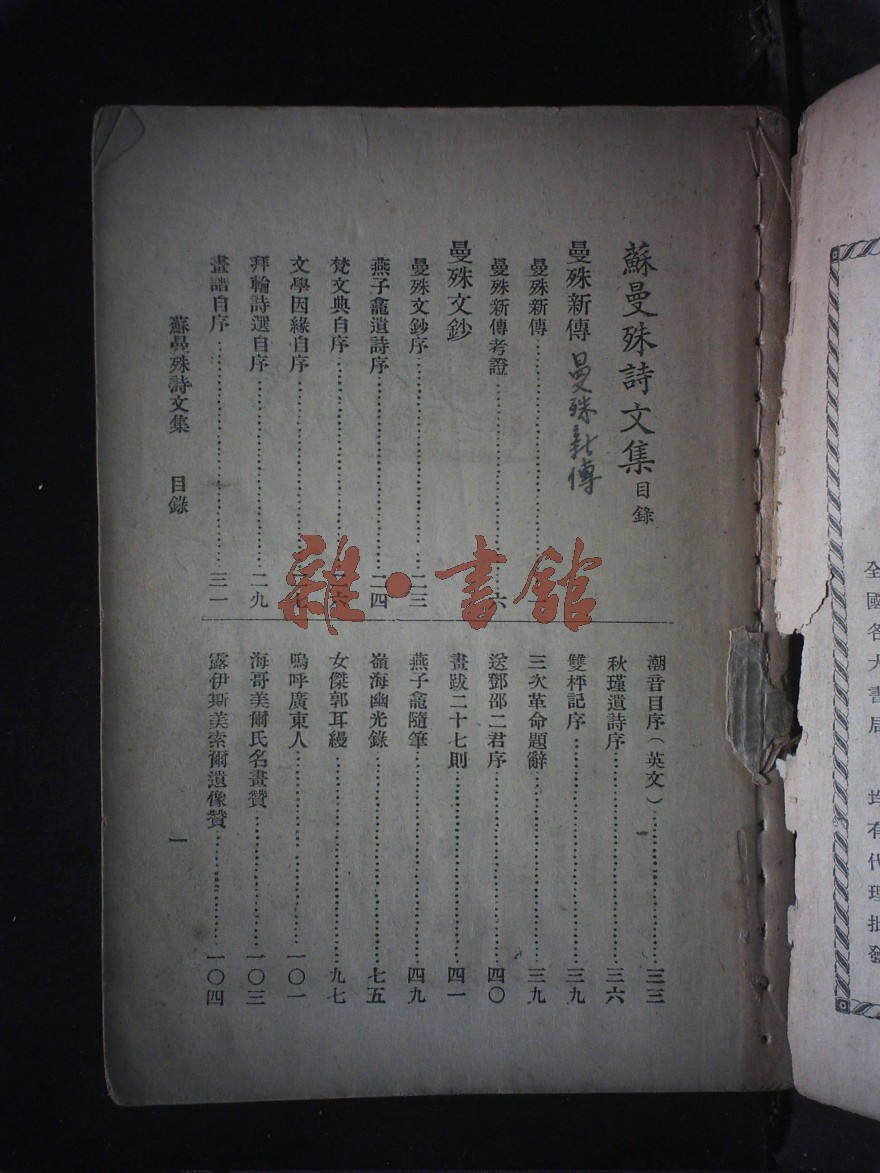 蘇曼殊詩文集 目錄
曼殊新傳 曼殊新傳
曼殊新傳……一
曼殊新傳考證……六
曼殊文鈔
曼殊文鈔序……二三
燕子龕遺詩序……二四
梵文典自序……二六
文學因緣自序……二七
拜輪詩選自序……二九
畫譜自序……三一
潮音自序（英文）……三三
秋瑾遺詩序……三六
雙枰記序……三九
三次革命題辭……三九
送鄧邵二君序……四〇
畫跋二十七則……四一
燕子龕隨筆……四九
嶺海幽光錄……七五
女傑郭耳縵……九七
嗚呼廣東人……一〇一
海哥美爾氏名畫贊……一〇三
露伊斯美索爾遺像贊……一〇四
蘇曼殊詩文集 目錄 一
雜·書館
全國各大書局 均有代理批發